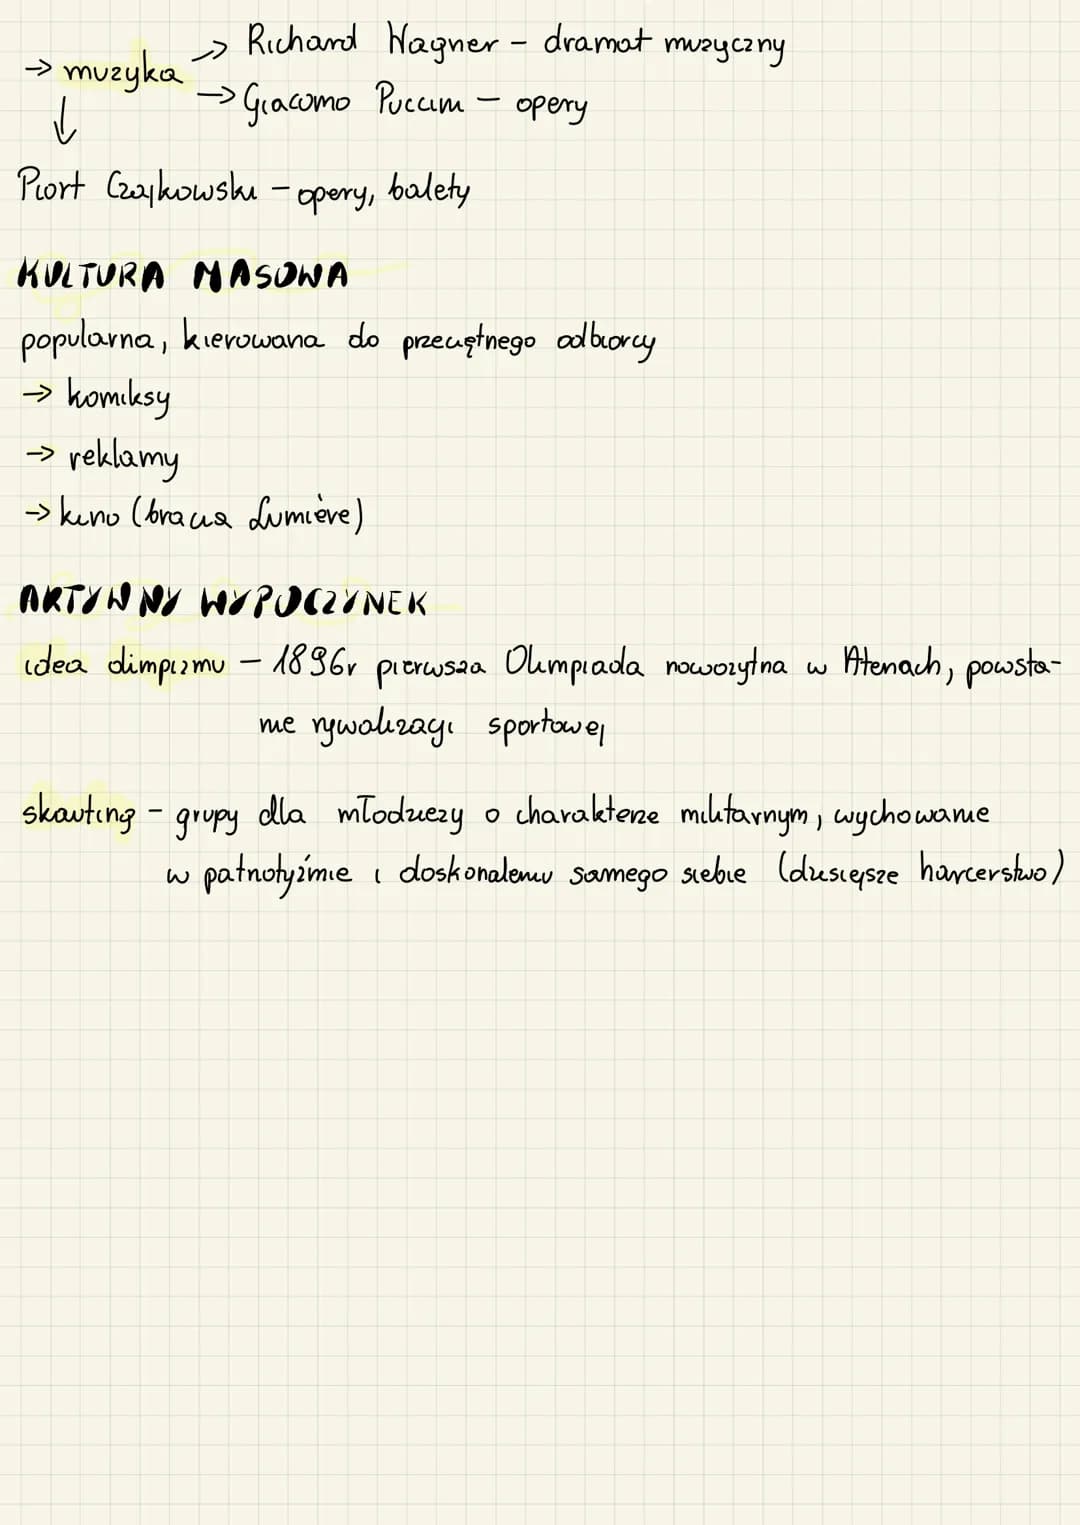 Richard Wagner – dramat muzyczny
→ muzyka
Giacomo Puccini – opery
Piort Czajkowski – opery, balety
KULTURA MASOWA
popularna, kierowana do przeciętnego odbiorcy
→ komiksy
→ reklamy
→ kino (bracia Lumière)
AKTYWNY WYPOCZYNEK
idea olimpizmu – 1896r pierwsza Olimpiada nowożytna w Atenach, powsta-
nie rywalizacji sportowej
skauting – grupy dla młodzieży o charakterze militarnym, wychowanie
w patriotyźmie i doskonaleniu samego siebie (dzisiejsze harcerstwo)